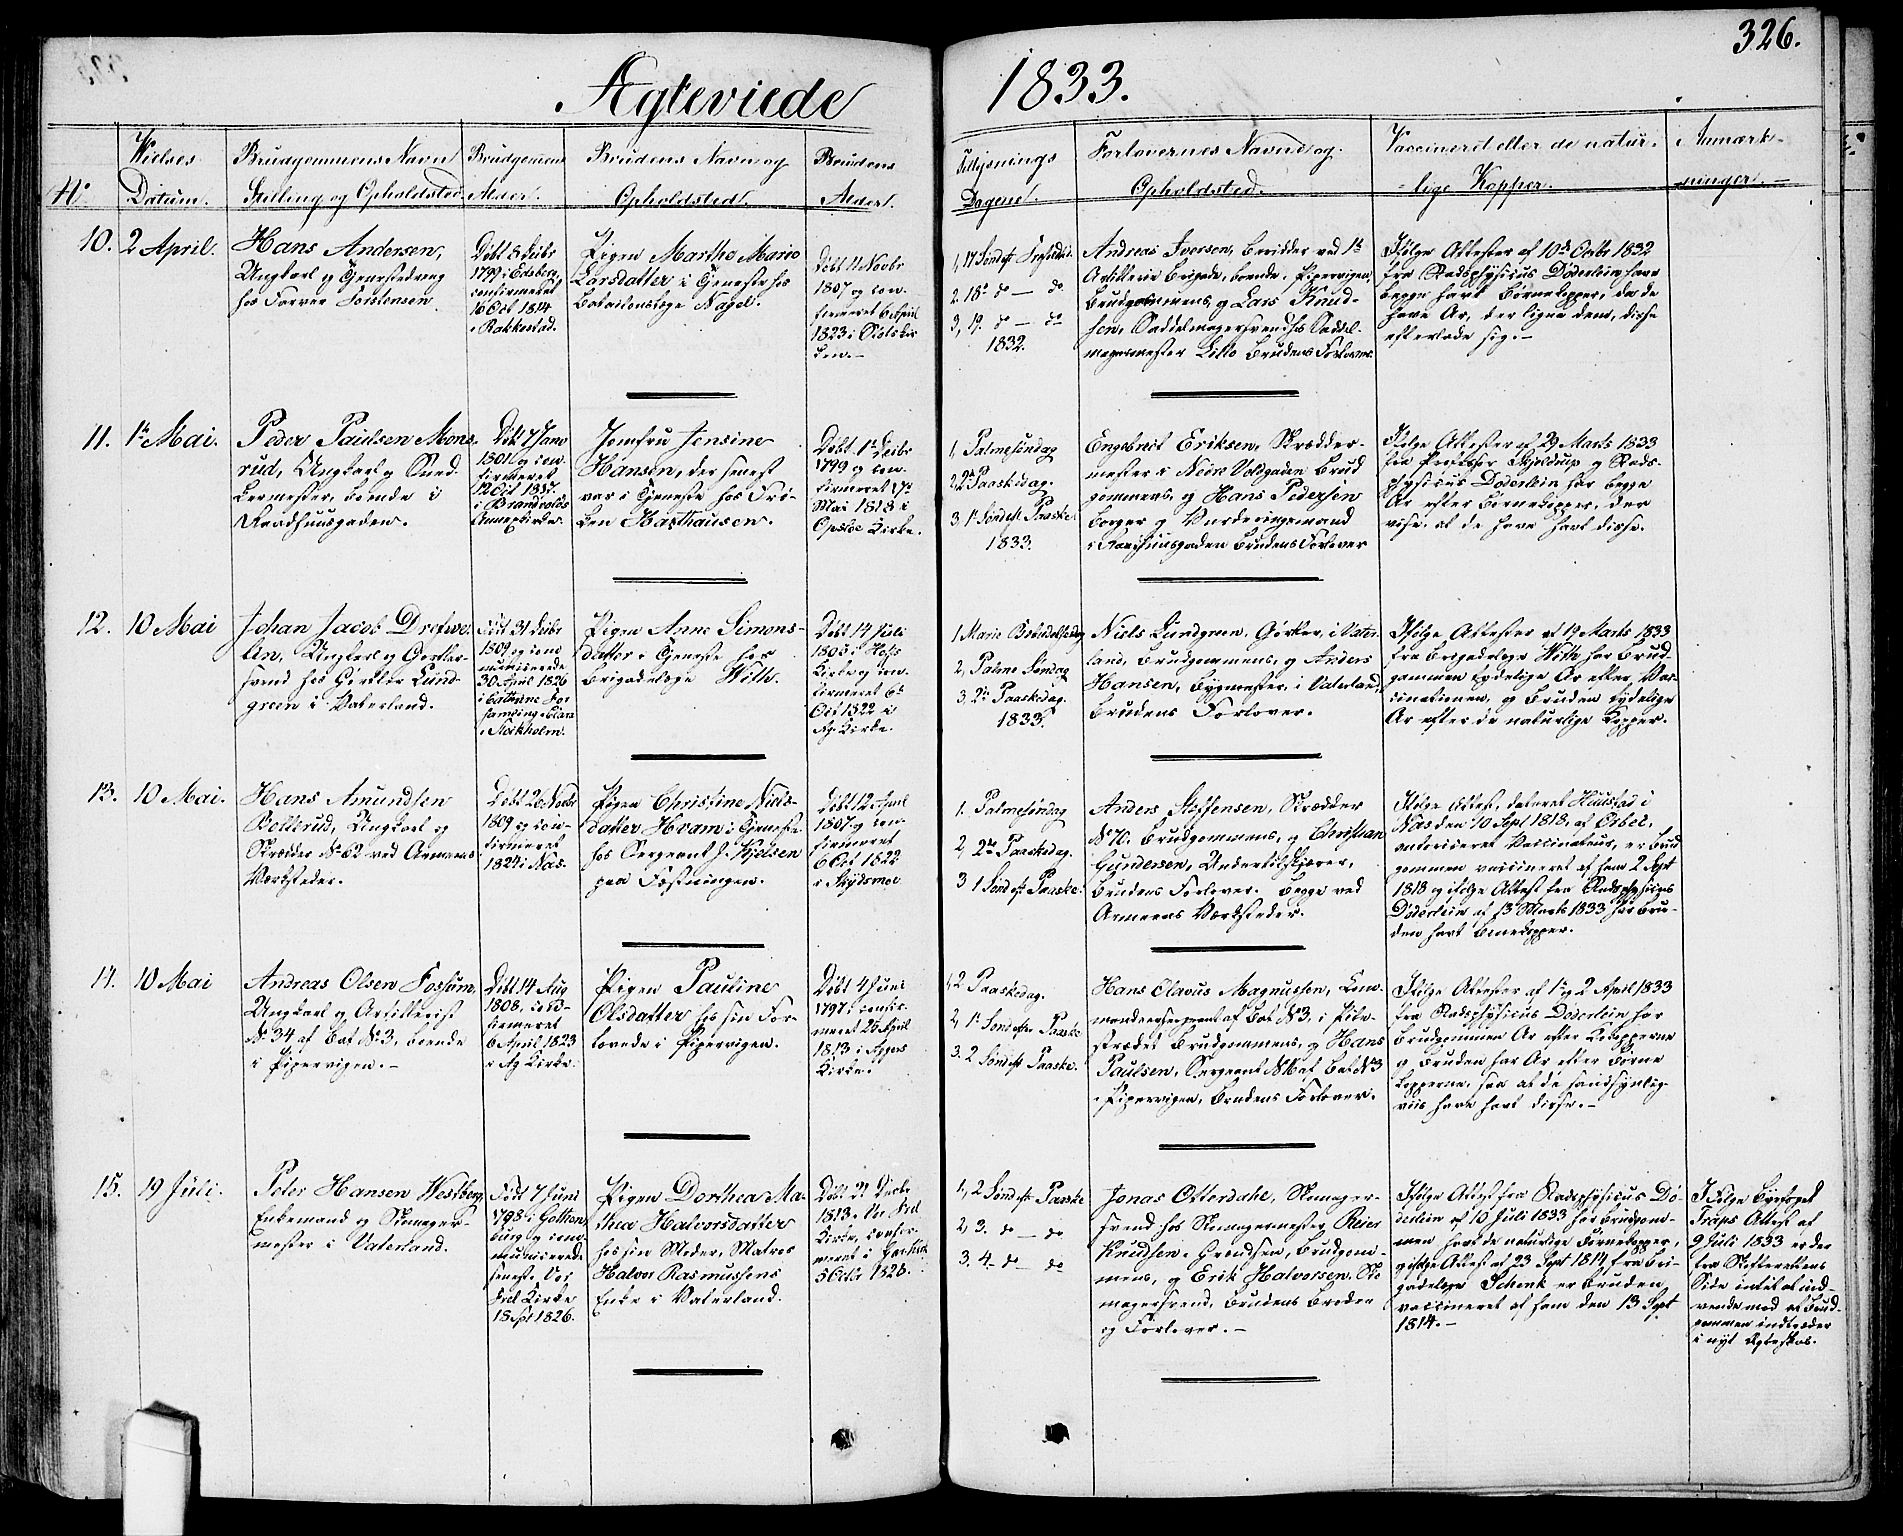 326.
Ægteviede 1833.
No
Vielses
Datum.
Brudgommens Navn
Stilling og Opholdsted.
Brudgommens
Alder.
Brudens Navn og
Opholdsted.
Brudens
Alder.
Tillysnings
Dagene.
Forlovernes Navne og
Opholdsted.
Vaccinerede eller de natur-
lige Kopper.
Anmærk-
ninger.
10. 2 April.
Hans Andersen,
Ungkarl og Tjenestedreng
hos Farver Torstensen
Døbt 8 Decbr
1799 i Edsberg,
confirmeret
16 Oct 1814
i Rakkestad.
Pigen Marthe Marie
Larsdatter i Tjeneste hos
Bataillonslæge Nagel.
Døbt 11 Novbr
1807 og con-
firmeret 6 April
1823 i Oslo Kir
ken.
1, 17 Søndag
2. 18de do — do
3, 19. do — do
1832.
Andreas Iversen, Berider ved 1ste
Artillerie Brigade, boende i Pipervigen,
Brudgommens, og Lars Knud-
sen, Saddelmagersvend hos Saddel-
magermester Brudens Forlover.
Ifølge Attester af 10de Octbr 1832
fra Stadsphysicus Döderlein have
begge havt Børnekopper, da de
have Ar, der ligne dem, disse
efterlade sig.
11. 1ste Mai.
Peder Paulsen Mons-
rud, Ungkarl og Sned-
kermester, boende i
Raadhuusgaden.
Døbt 7 Janv
1801 og con-
firmeret
12 Oct 1817
i Brandvolds
Annexkirke.
Jomfru Jensine
Hansen, der senest
var i Tjeneste hos Frø-
ken Haxthausen.
Døbt 1ste Decbr
1799 og con-
firmeret 17de
Mai 1818 i
Opslo Kirke.
1, Palmesøndag
2, 2den Paaskedag.
3 1ste Sønd eft Paaske
1833.
Engebret Eriksen, Skrædder-
mester i Nedre Voldgaden Brud
gommens, og Hans Pedersen
Borger og Vurderingsmand
i Raadhuusgaden Brudens Forlover
Ifølge Attester af 29 Marts 1833
fra Professor Skjeldrup og Stads-
physicus Döderlein har begge
Ar efter Børnekopper, der
vise, at de have havt disse.
12. 10 Mai
Johan Jacob
Ungkarl og Gørtler-
svend hos Gørtler Lund-
green i Vaterland.
Født 31 Decbr
1809 og com
municerede
30 April 1826
i Cathrine For
samling
i Stockholm.
Pigen Anne Simons-
datter i Tjeneste hos
Brigadelæge With.
Døbt 14 Juli
1805 i Hofs
Kirke og con
firmeret 6te
Oct 1822 i
Ag. Kirke.
1 Mariæ Bebudelsesdag
2, Palme Søndag
3, 2den Paaskedag.
1833.
Niels Lundgreen, Gørtler, i Vater-
land, Brudgommens, og Anders
Hansen, Bygmester i Vaterland,
Brudens Forlover.
Ifølge Attester af 19 Marts 1833
fra Brigadelæge With har Brud-
gommen tydelige Ar efter Vac-
cinationen, og Bruden tydelige
Ar efter de naturlige Kopper.
13. 10 Mai.
Hans Amundsen
Bollerud, Ungkarl og
Skrædder No 62 ved Armeens
Værksteder.
Døbt 26 Novbr
1809 og con-
firmeret
1824 i Næs.
Pigen Christine Niels-
datter Hvam i Tjeneste
hos Sergeant J. Kjelsen
paa Fæstningen.
Døbt 12 April
1807 og con-
firmeret
6 Oct 1822
i Skydsmoe
1. Palmesøndag
2, 2den Paaskedag.
3 1 Sønd eft Paaske.
Anders Steffensen, Skrædder
No 70. Brudgommens, og Christian
Gundersen, Undertilskjærer,
Brudens Forlover. Begge ved
Armeens Værksteder.
Ifølge Attest, dateret Huustad i
Næs den 10 Sept 1818, af Ørbek,
autoriseret Vaccinateur, er Brud
gommen vaccineret af ham 2 Sept
1818 og ifølge Attest fra Stadsphysicus
Döderlein af 13 Marts 1833 har Bru-
den havt Børnekopper.
14. 10 Mai
Andreas Olsen Fossum,
Ungkarl og Artillerist
No 34 af Bat No 3, boende
i Pipervigen.
Døbt 14 Aug
1808, con-
firmeret
6 April 1823
i Ag Kirke.
Pigen Pauline
Olsdatter hos sin For-
lovede i Pipervigen.
Døbt 4 Juni
1797 i confir-
meret 25 April
1813 i Aggers
Kirke.
1, 2 Paaskedag.
2, 1ste Sønd efter Paaske
3. 2 Sønd eft Paaske.
Hans Olavus Magnussen, Com-
mandeersergeant af Bat No 3, i Pile-
strædet Brudgommens, og Hans
Paulsen, Sergeant No 16 af Bat No 3
i Pipervigen, Brudens Forlover.
Ifølge Attester af 1 og 2 April 1833
fra Stadsphysicus Döderlein har
Brudgommen Ar efter Kokopperne
og Bruden har Ar efter Børne
kopperne, saa at de sandsynlig-
viis have havt disse.
15. 19 Juli.
Peter Hansen Westberg,
Enkemand og Skomager-
mester i Vaterland.
Født 7 Juni
1798 i Gothen
burg og com
municerede
senest i Vor
Frel Kirke
18 Spt 1826.
Pigen Dorthea Ma-
thea Halvorsdatter
hos sin Moder, Matros
Halvor Rasmussens
Enke i Vaterland.
Døbt 21 Decbr
1813 i Vor Frel
Kirke, confir-
meret i
5 Octbr 1828.
1, 2 Sønd eft Paaske
2, 3. do — do
3. 4. do — do
Jonas Otterdahl, Skomager-
svend hos Skomagermester Reier
Knudsen, Grændsen, Brudgom-
mens, og Erik Halvorsen, Sko
magersvend, Brudens Broder
og Forlover.
Ifølge Attest fra Stadsphysicus Dö-
derlein af 10 Juli 1833 har Brudgom-
men havt de naturlige Børnekopper,
ifølge Attest af 23 Sept 1814, fra Bri-
gadelæge Schenk er Bruden
vaccineret af ham den 13 Sept
1814.
Ifølge Byefoged
Traps Attest af
9 Juli 1833 er der
fra Skifterettens
Side intet at ind-
vende mod at Brud-
gommen indtræder
i nyt Ægteskab.